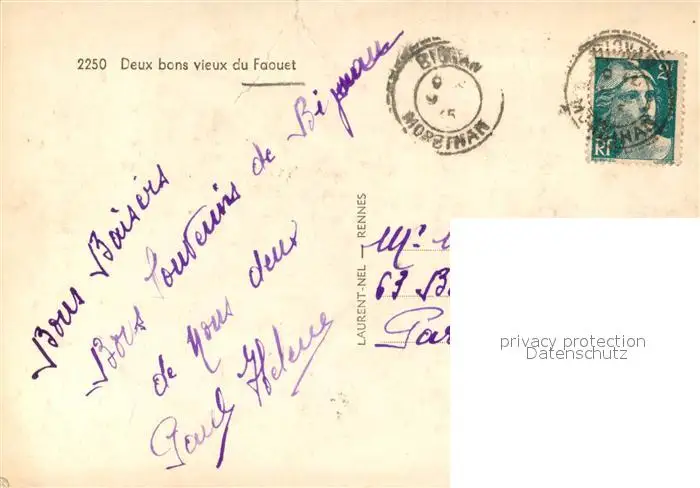 2250 Deux bons vieux du Faouet
BIGNAN
45
MORBIHAN
2F
RF
Bons Baisers
Bons Souvenirs de Bignan
de Nous deux
Paul Hélène
LAURENT-NEL — RENNES
Mr
63 B
Par
privacy protection
Datenschutz